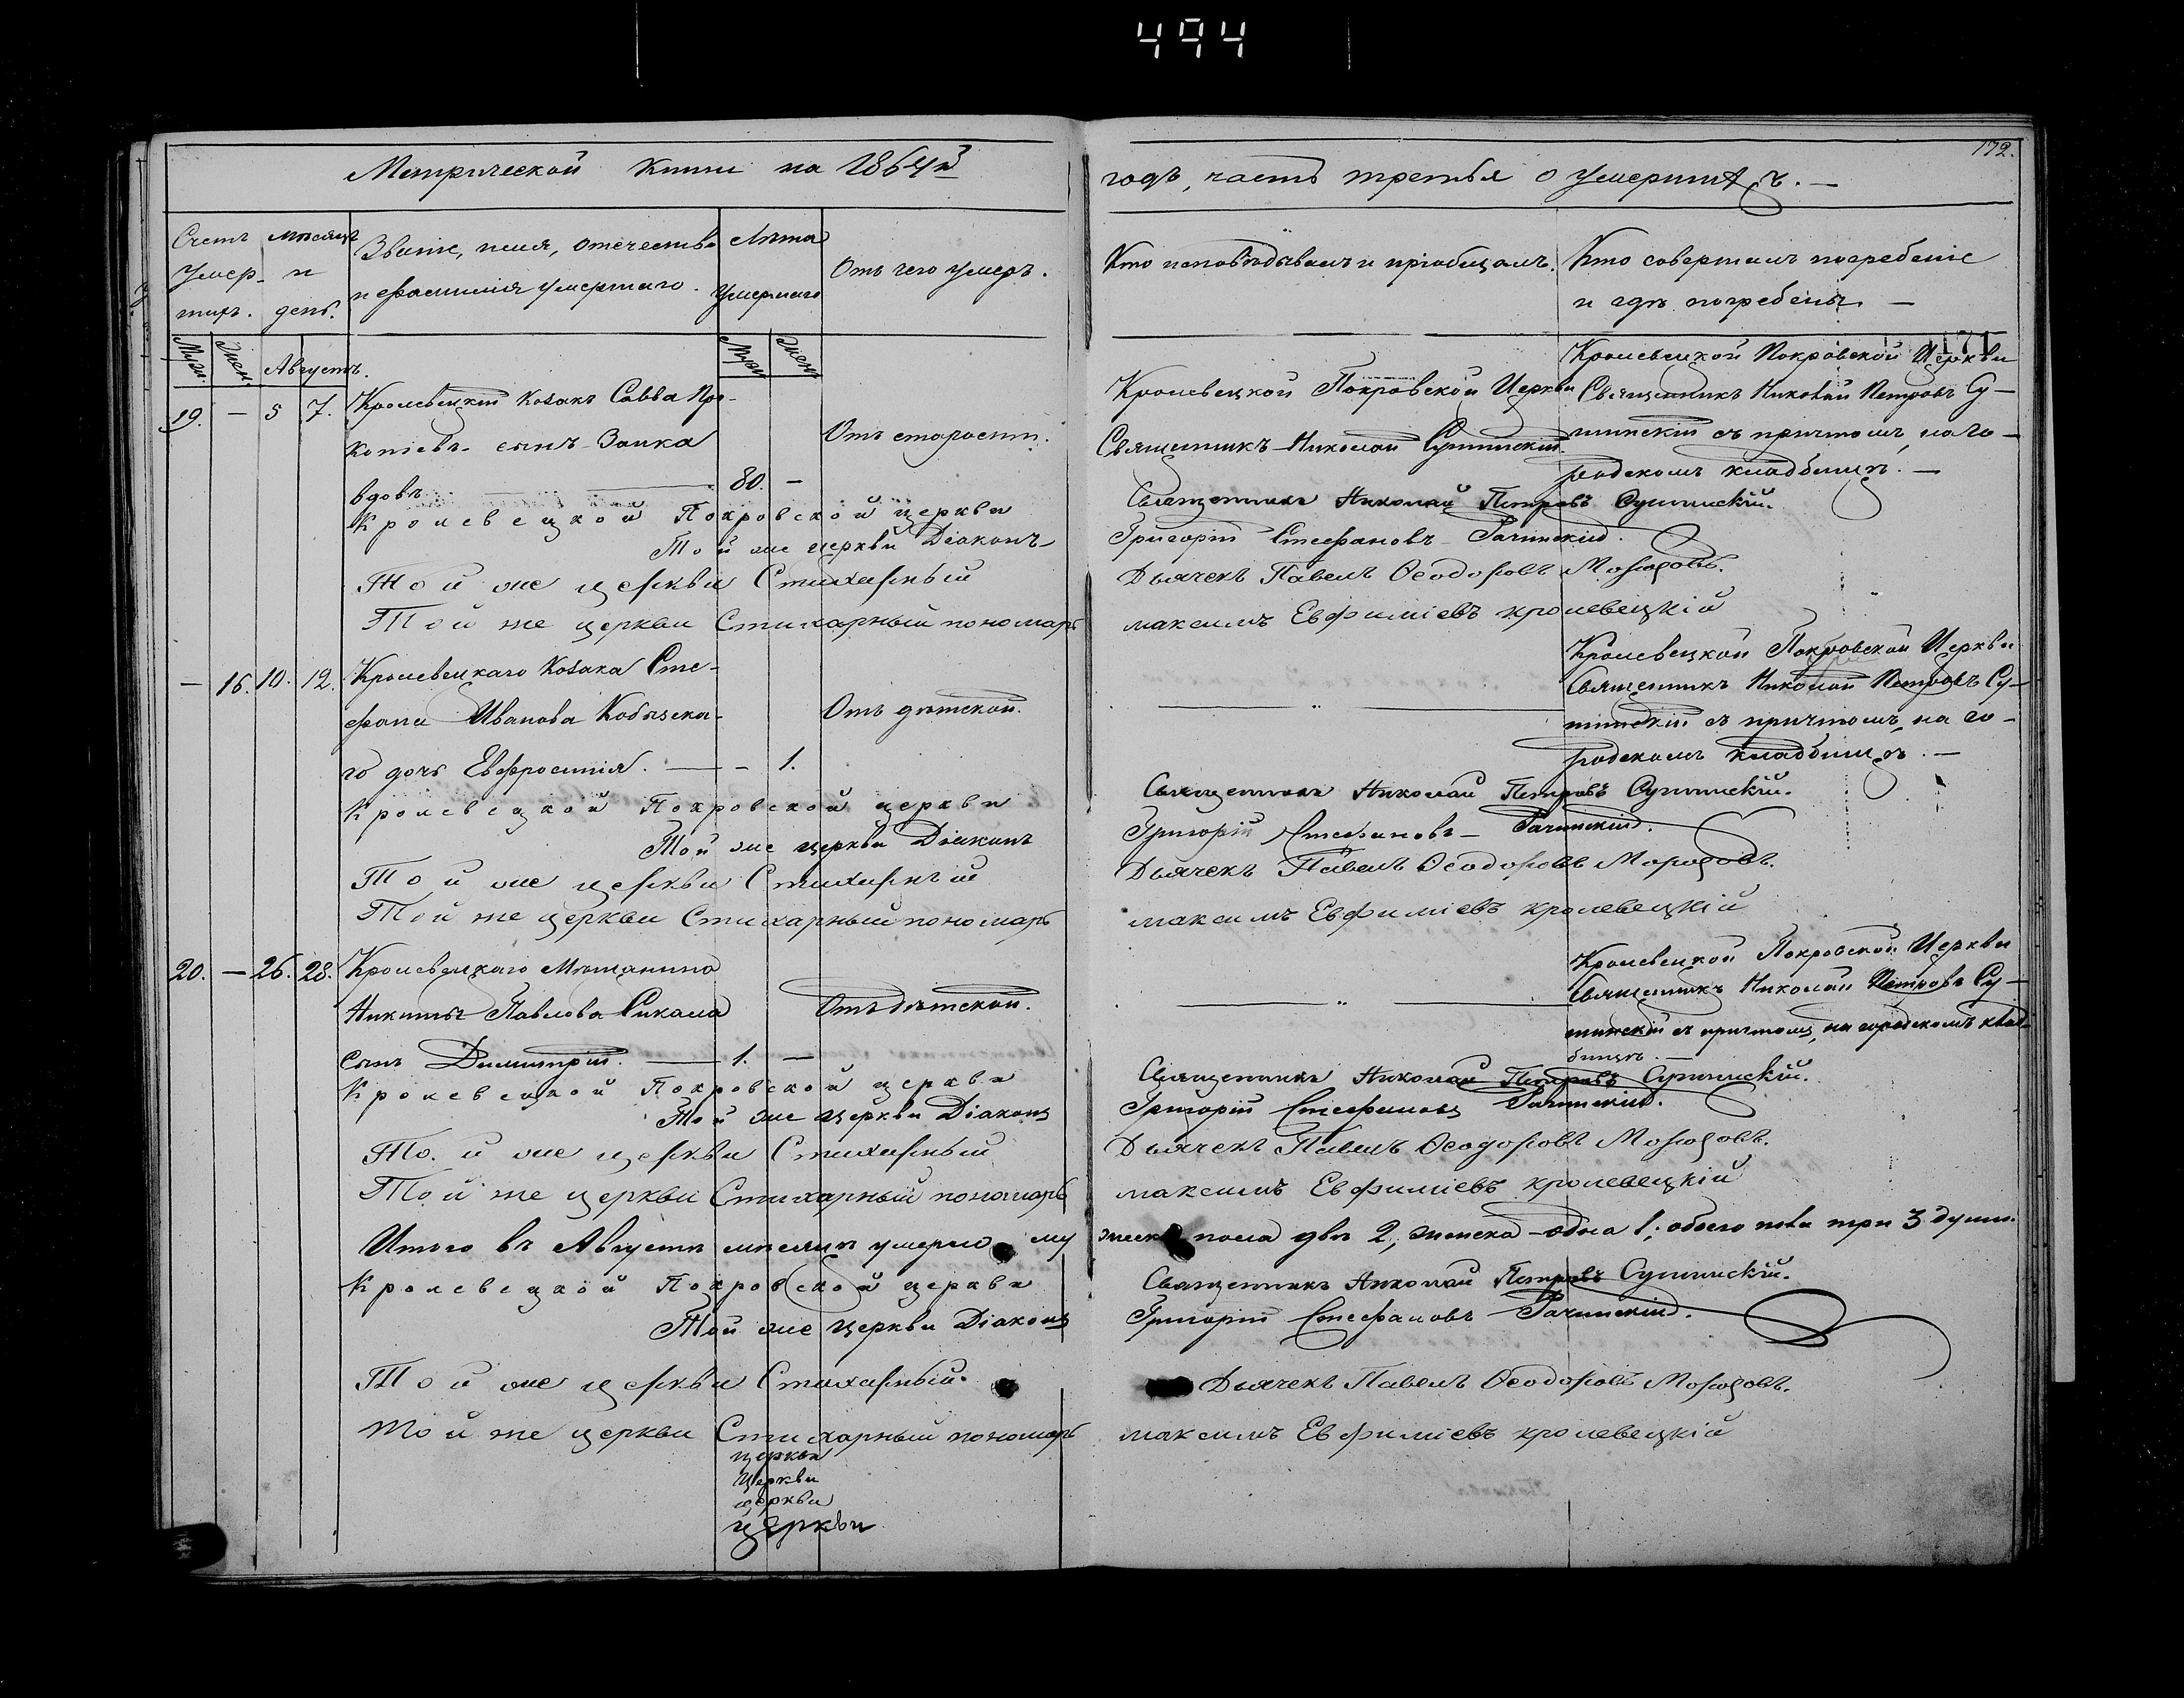 494
Метрической книги на 1864й
годъ, часть третья о умершихъ. —
172.
171
Счетъ умер- шихъ.
Мужс. Жен.
мѣсяцъ и день.
Августъ.
Званіе, имя, отечество
и фамилія умершаго.
Лѣта умершаго
Муж. Жен.
Отъ чего умеръ.
Кто исповѣдывалъ и пріобщалъ.
Кто совершалъ погребеніе
и гдѣ погребены. —
19. — 5 7. Кролевецкій козакъ Савва Про-
копіевъ сынъ Заика
вдовъ — 80. —
Отъ старости.
Кролевецкой Покровской Церкви
Священникъ Николай Сутинскій.
Кролевецкой Покровской Церкви
Священникъ Николай Петровъ Су-
тинскій съ причтомъ, на го-
родскомъ кладбищѣ. —
Кролевецкой Покровской церкви Священникъ Николай Петровъ Сутинскій.
Той же церкви Діаконъ Григорій Стефановъ Рачинскій.
Той же церкви Стихарный Дьячекъ Павелъ Ѳеодоровъ Морозовъ.
Той же церкви Стихарный пономарь максимъ Евфиміевъ кролевецкій
— 16. 10. 12. Кролевецкаго козака Сте-
фана Иванова Кобызска-
го дочь Евфросинія. — — 1.
Отъ дѣтской.
— " —
Кролевецкой Покровской Церкви
Священникъ Николай Петровъ Су-
тинскій съ причтомъ, на го-
родскомъ кладбищѣ. —
Кролевецкой Покровской церкви Священникъ Николай Петровъ Сутинскій.
Той же церкви Діаконъ Григорій Стефановъ Рачинскій.
Той же церкви Стихарный Дьячекъ Павелъ Ѳеодоровъ Морозовъ.
Той же церкви Стихарный пономарь максимъ Евфиміевъ кролевецкій
20. — 26. 28. Кролевецкаго Мѣщанина
Никиты Павлова Сикала
сынъ Димитрій. — 1. —
Отъ дѣтской.
— " —
Кролевецкой Покровской Церкви
Священникъ Николай Петровъ Су-
тинскій съ причтомъ, на городскомъ клад-
бищѣ. —
Кролевецкой Покровской церкви Священникъ Николай Петровъ Сутинскій.
Той же церкви Діаконъ Григорій Стефановъ Рачинскій.
Той же церкви Стихарный Дьячекъ Павелъ Ѳеодоровъ Морозовъ.
Той же церкви Стихарный пономарь максимъ Евфиміевъ кролевецкій
Итого въ Августѣ мѣсяцѣ умерло му жеск пола двѣ 2, женска — одна 1; обоего пола три 3 души.
Кролевецкой Покровской церкви Священникъ Николай Петровъ Сутинскій.
Той же церкви Діаконъ Григорій Стефановъ Рачинскій.
Той же церкви Стихарный Дьячекъ Павелъ Ѳеодоровъ Морозовъ.
Той же церкви Стихарный пономарь максимъ Евфиміевъ кролевецкій
церкви
Церкви
церкви
церкви